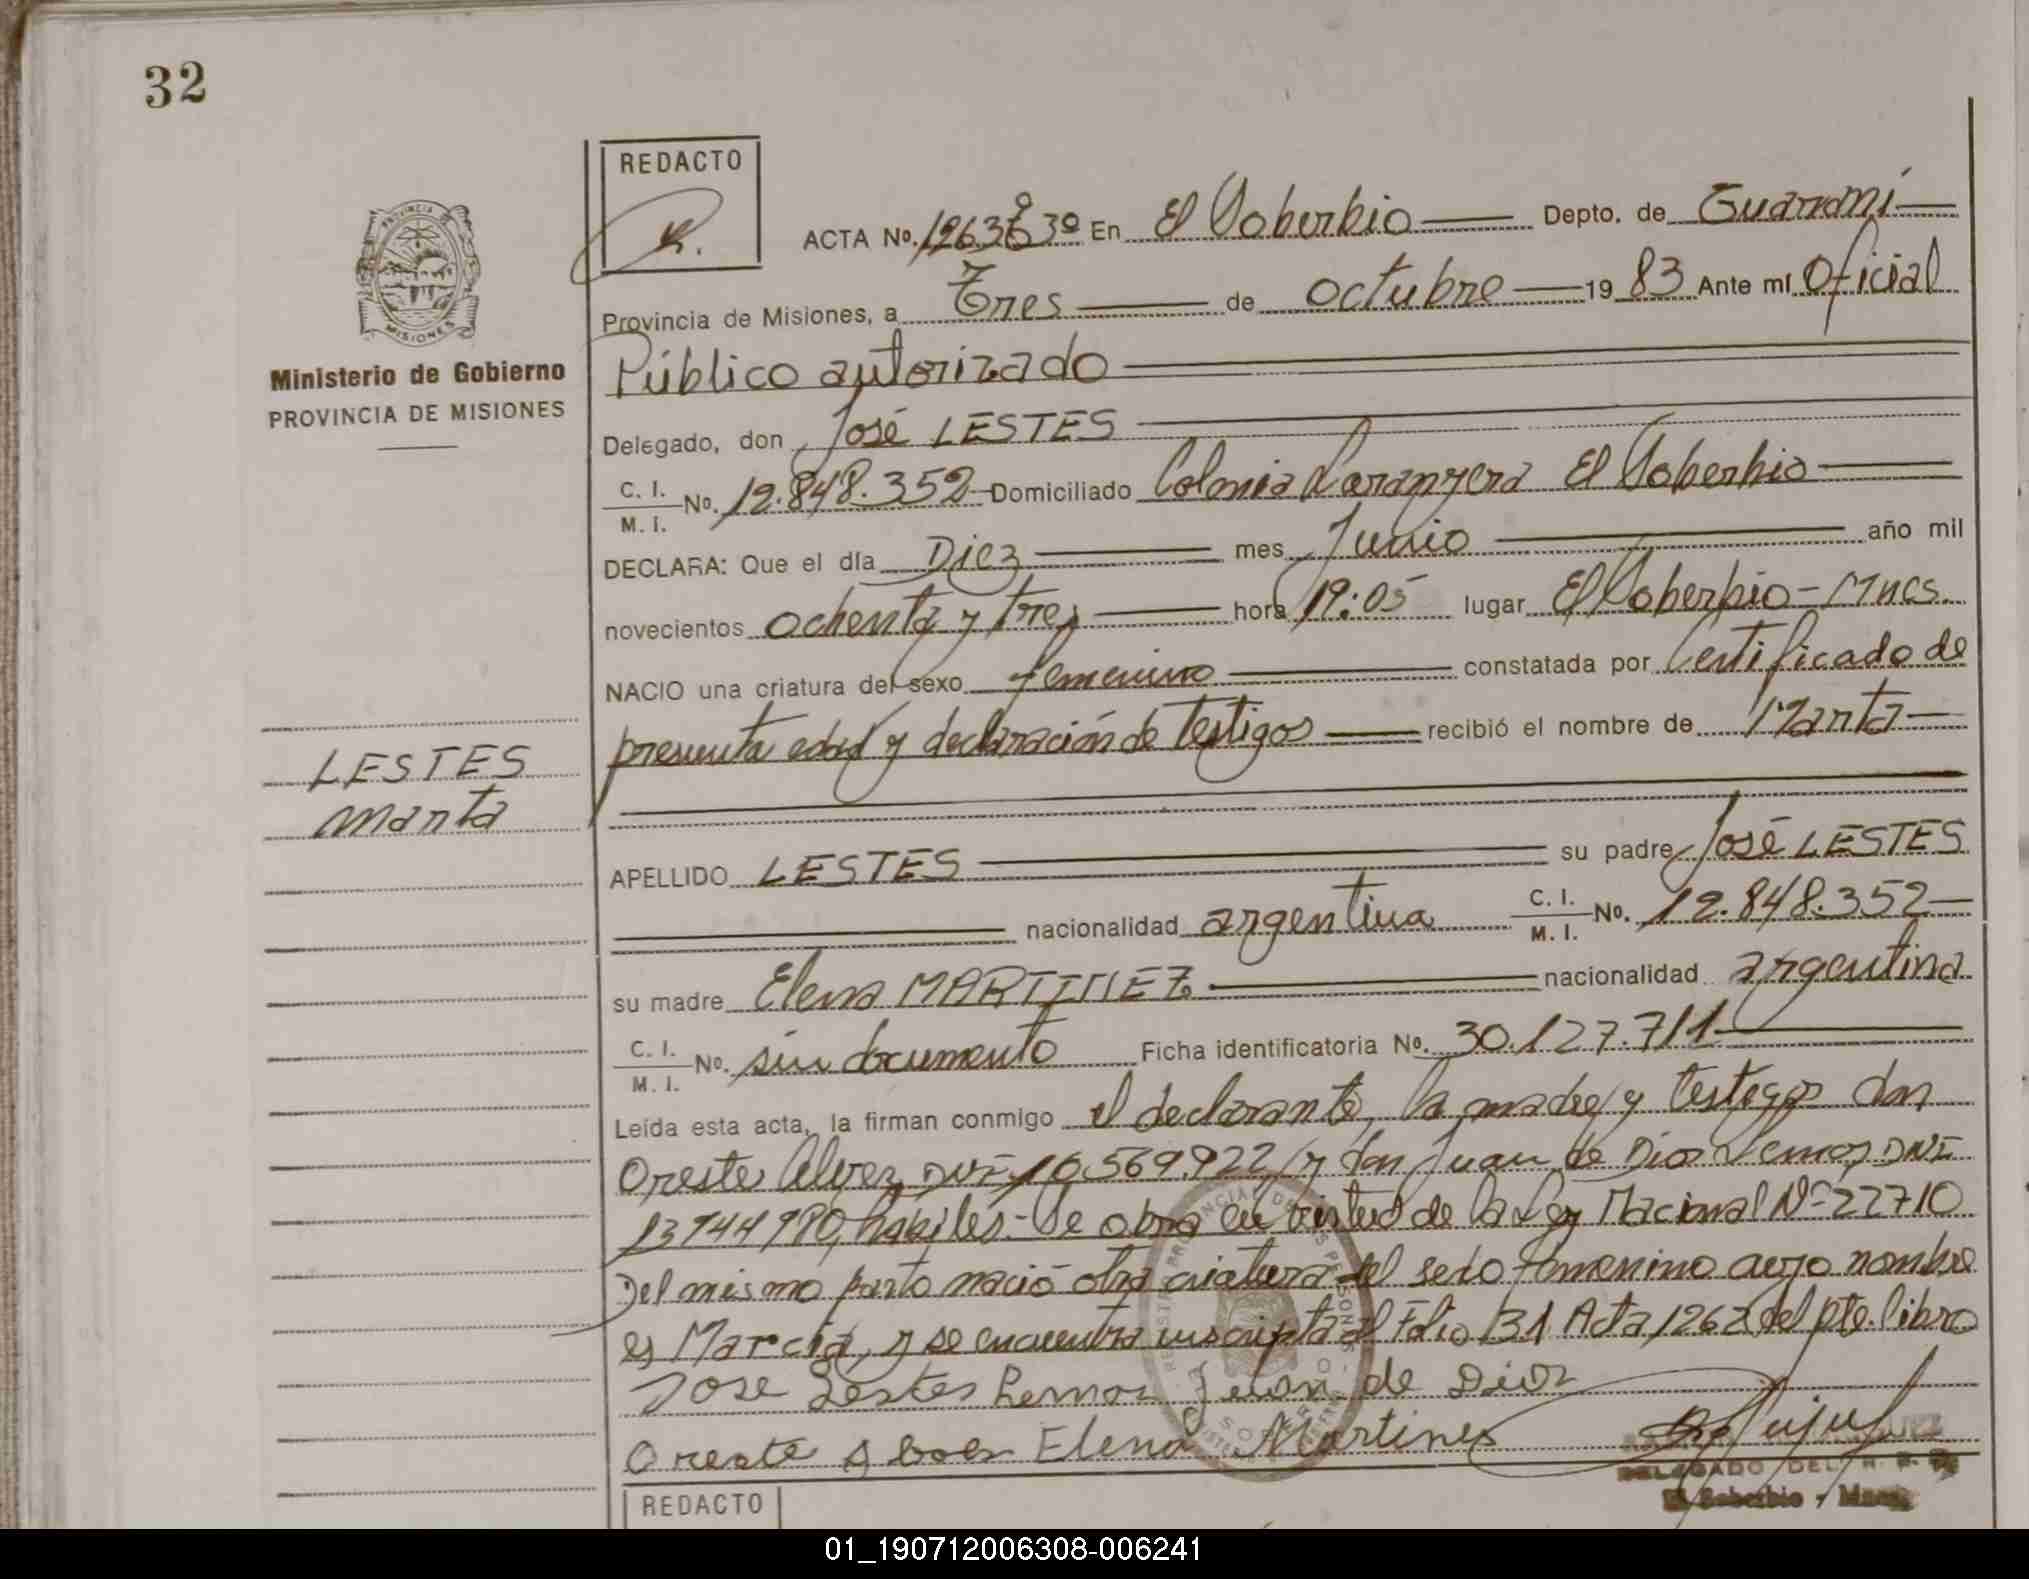 32
REDACTO
ACTA No. 1263 Tº 3º En El Soberbio Depto. de Guaraní
Provincia de Misiones, a Tres de octubre 19 83 Ante mí Oficial
Público autorizado
Ministerio de Gobierno
PROVINCIA DE MISIONES
Delegado, don José LESTES
C. I. / M. I. No. 12.848.352 Domiciliado Colonia Naranjera El Soberbio
DECLARA: Que el día Diez mes Junio año mil
novecientos ochenta y tres hora 19:05 lugar El Soberbio - Mnes.
NACIO una criatura del sexo femenino constatada por Certificado de
presunta edad y declaración de Testigos recibió el nombre de Marta
LESTES
Marta
APELLIDO LESTES su padre José LESTES
nacionalidad argentina C. I. / M. I. No. 12.848.352
su madre Elena MARTINEZ nacionalidad argentina
C. I. / M. I. No. sin documento Ficha identificatoria No. 30.127.711
Leída esta acta, la firman conmigo el declarante, la madre y testigos don
Oreste Alvez DNI 10.569.922 y don Juan de Dios Lemos DNI
13744980, hábiles.- Se obra en virtud de la Ley Nacional Nº 22710
Del mismo parto nació otra criatura del sexo femenino cuyo nombre
es Marcia, y se encuentra inscripta al Folio 31 Acta 1262 del pte. libro
Jose Lestes Lemos Juan de Dios
Oreste Elena Martines
DELEGADO DEL R. P.
El Soberbio - Mnes.
REDACTO
01_190712006308-006241